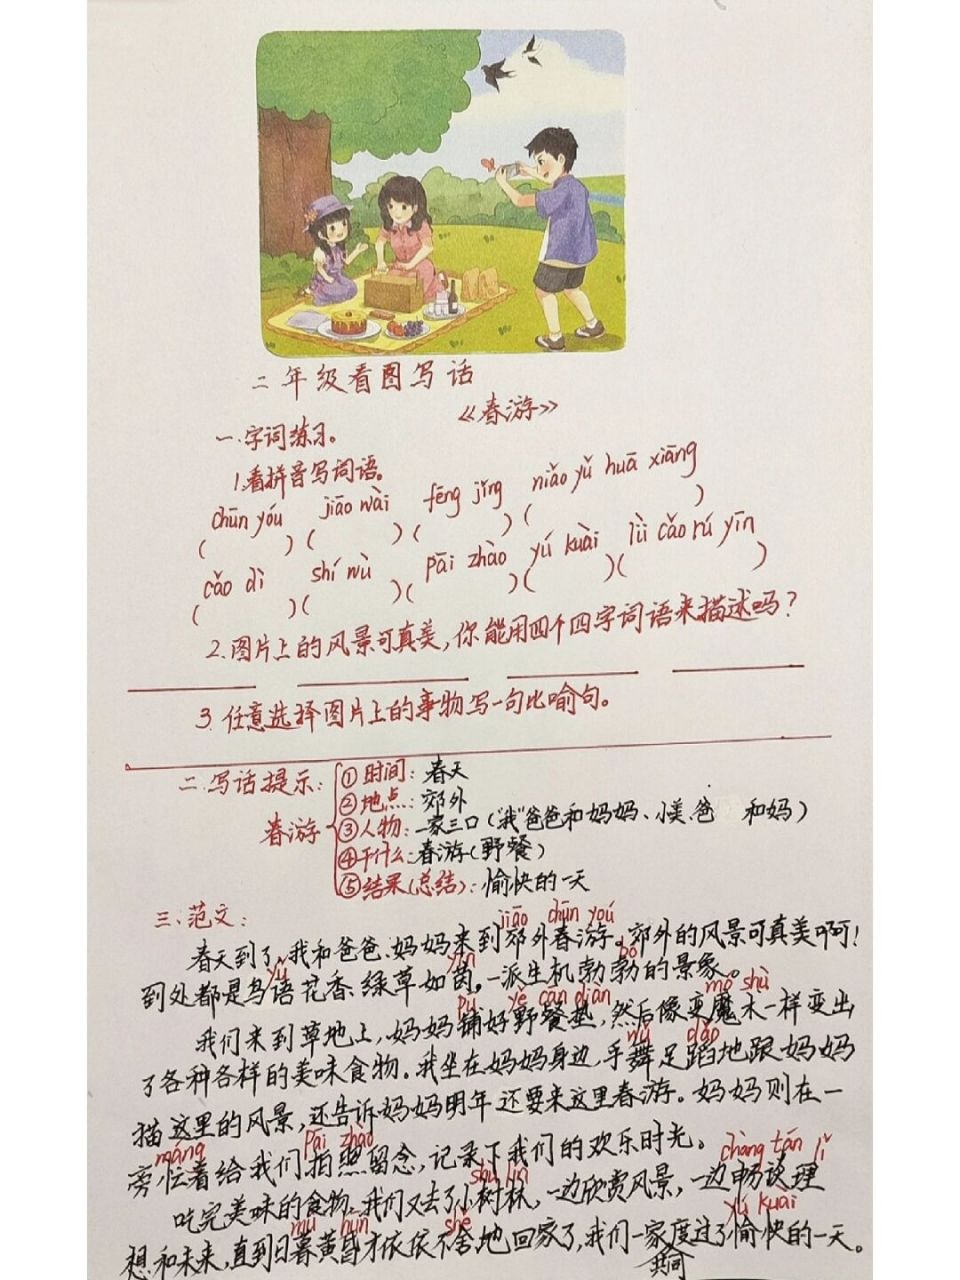 二年级看图写话
《春游》
一.字词练习。
1.看拼音写词语。
chūn yóu jiāo wài fēng jǐng niǎo yǔ huā xiāng
( ) ( ) ( ) ( )
cǎo dì shí wù pāi zhào yú kuài lǜ cǎo rú yīn
( ) ( ) ( ) ( ) ( )
2.图片上的风景可真美,你能用四个四字词语来描述吗?
3.任意选择图片上的事物写一句比喻句。
二.写话提示:
春游
①时间:春天
②地点:郊外
③人物:一家三口(“我”爸爸和妈妈、小美.爸 和妈)
④干什么:春游(野餐)
⑤结果(总结):愉快的一天
三、范文:
jiāo chūn yóu
春天到了,我和爸爸、妈妈来到郊外春游。郊外的风景可真美啊!
yǔ yīn bó
到处都是鸟语花香、绿草如茵。一派生机勃勃的景象。
pū yě cān diàn mó shù
我们来到草地上,妈妈铺好野餐垫,然后像变魔术一样变出
wǔ dǎo
了各种各样的美味食物。我坐在妈妈身边,手舞足蹈地跟妈妈
描这里的风景,还告诉妈妈明年还要来这里春游。妈妈则在一
máng pāi zhào
旁,忙着给我们拍照留念,记录下我们的欢乐时光。
shù lín chàng tán lǐ
吃完美味的食物,我们又去了小树林,一边欣赏风景,一边畅谈理
mù hūn shě yú kuài
想和未来,直到日暮黄昏才依依不舍地回家了,我们一家度过了愉快的一天。
共同